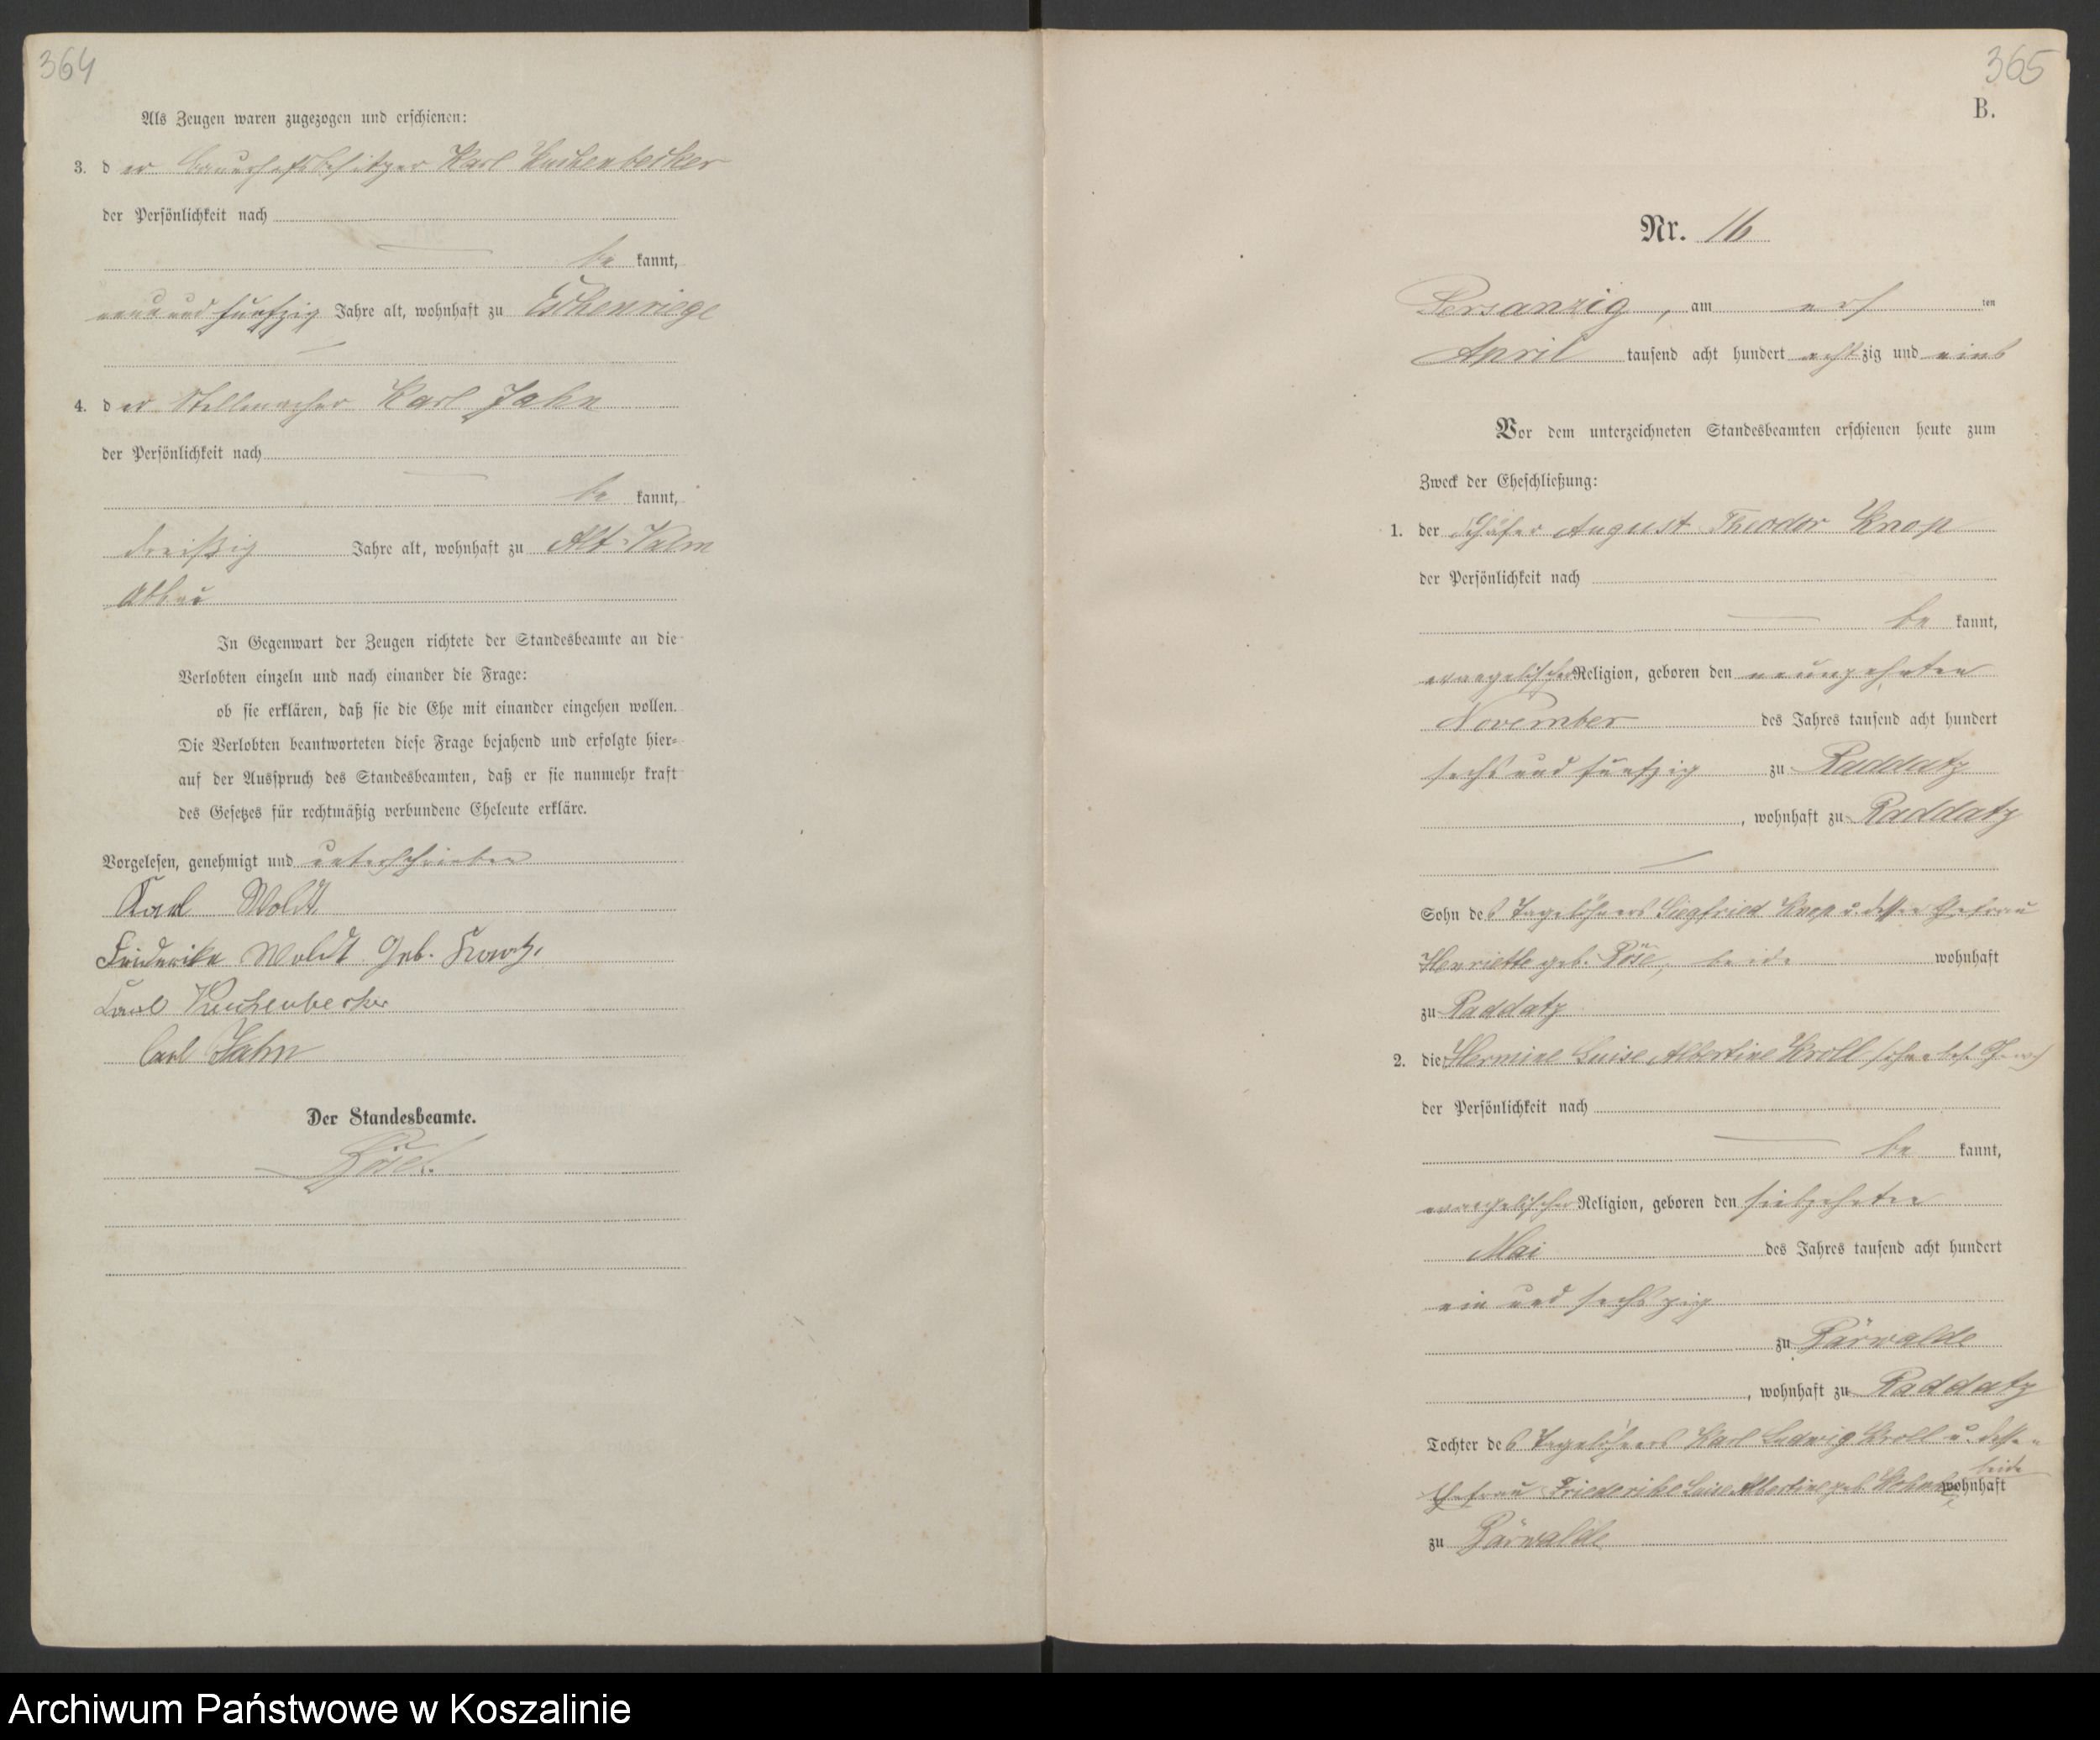 364
Als Zeugen waren zugezogen und erschienen:
3. der Bauerhofsbesitzer Karl Kuchenbecker
der Persönlichkeit nach
be kannt,
neun und fünfzig Jahre alt, wohnhaft zu Eschenriege
4. der Stellmacher Karl Jahn
der Persönlichkeit nach
be kannt,
dreißig Jahre alt, wohnhaft zu Alt-Valm
Abbau
In Gegenwart der Zeugen richtete der Standesbeamte an die
Verlobten einzeln und nach einander die Frage:
ob sie erklären, daß sie die Ehe mit einander eingehen wollen.
Die Verlobten beantworteten diese Frage bejahend und erfolgte hier-
auf der Ausspruch des Standesbeamten, daß er sie nunmehr kraft
des Gesetzes für rechtmäßig verbundene Eheleute erkläre.
Vorgelesen, genehmigt und unterschrieben
Karl Woldt
Friderike Woldt geb.
Karl Kuchenbecker
Carl Jahn
Der Standesbeamte.
365
B.
Nr. 16
Persanzig, am ersten
April tausend acht hundert achtzig und eins
Vor dem unterzeichneten Standesbeamten erschienen heute zum
Zweck der Eheschließung:
1. der Schäfer August Theodor Knop
der Persönlichkeit nach
be kannt,
evangelischer Religion, geboren den neunzehnten
November des Jahres tausend acht hundert
sechs und fünfzig zu Raddatz
, wohnhaft zu Raddatz
Sohn des Tagelöhners Siegfried Knop u. dessen Ehefrau
Henriette geb. Röse, beide wohnhaft
zu Raddatz
2. die Hermine Luise Albertine Kroll
der Persönlichkeit nach
be kannt,
evangelischer Religion, geboren den siebzehnten
Mai des Jahres tausend acht hundert
ein und sechszig
zu Bärwalde
, wohnhaft zu Raddatz
Tochter des Tagelöhners Karl Ludwig Kroll u. dessen
Ehefrau Friederike Luise Albertine geb. beide wohnhaft
zu Bärwalde
Archiwum Państwowe w Koszalinie